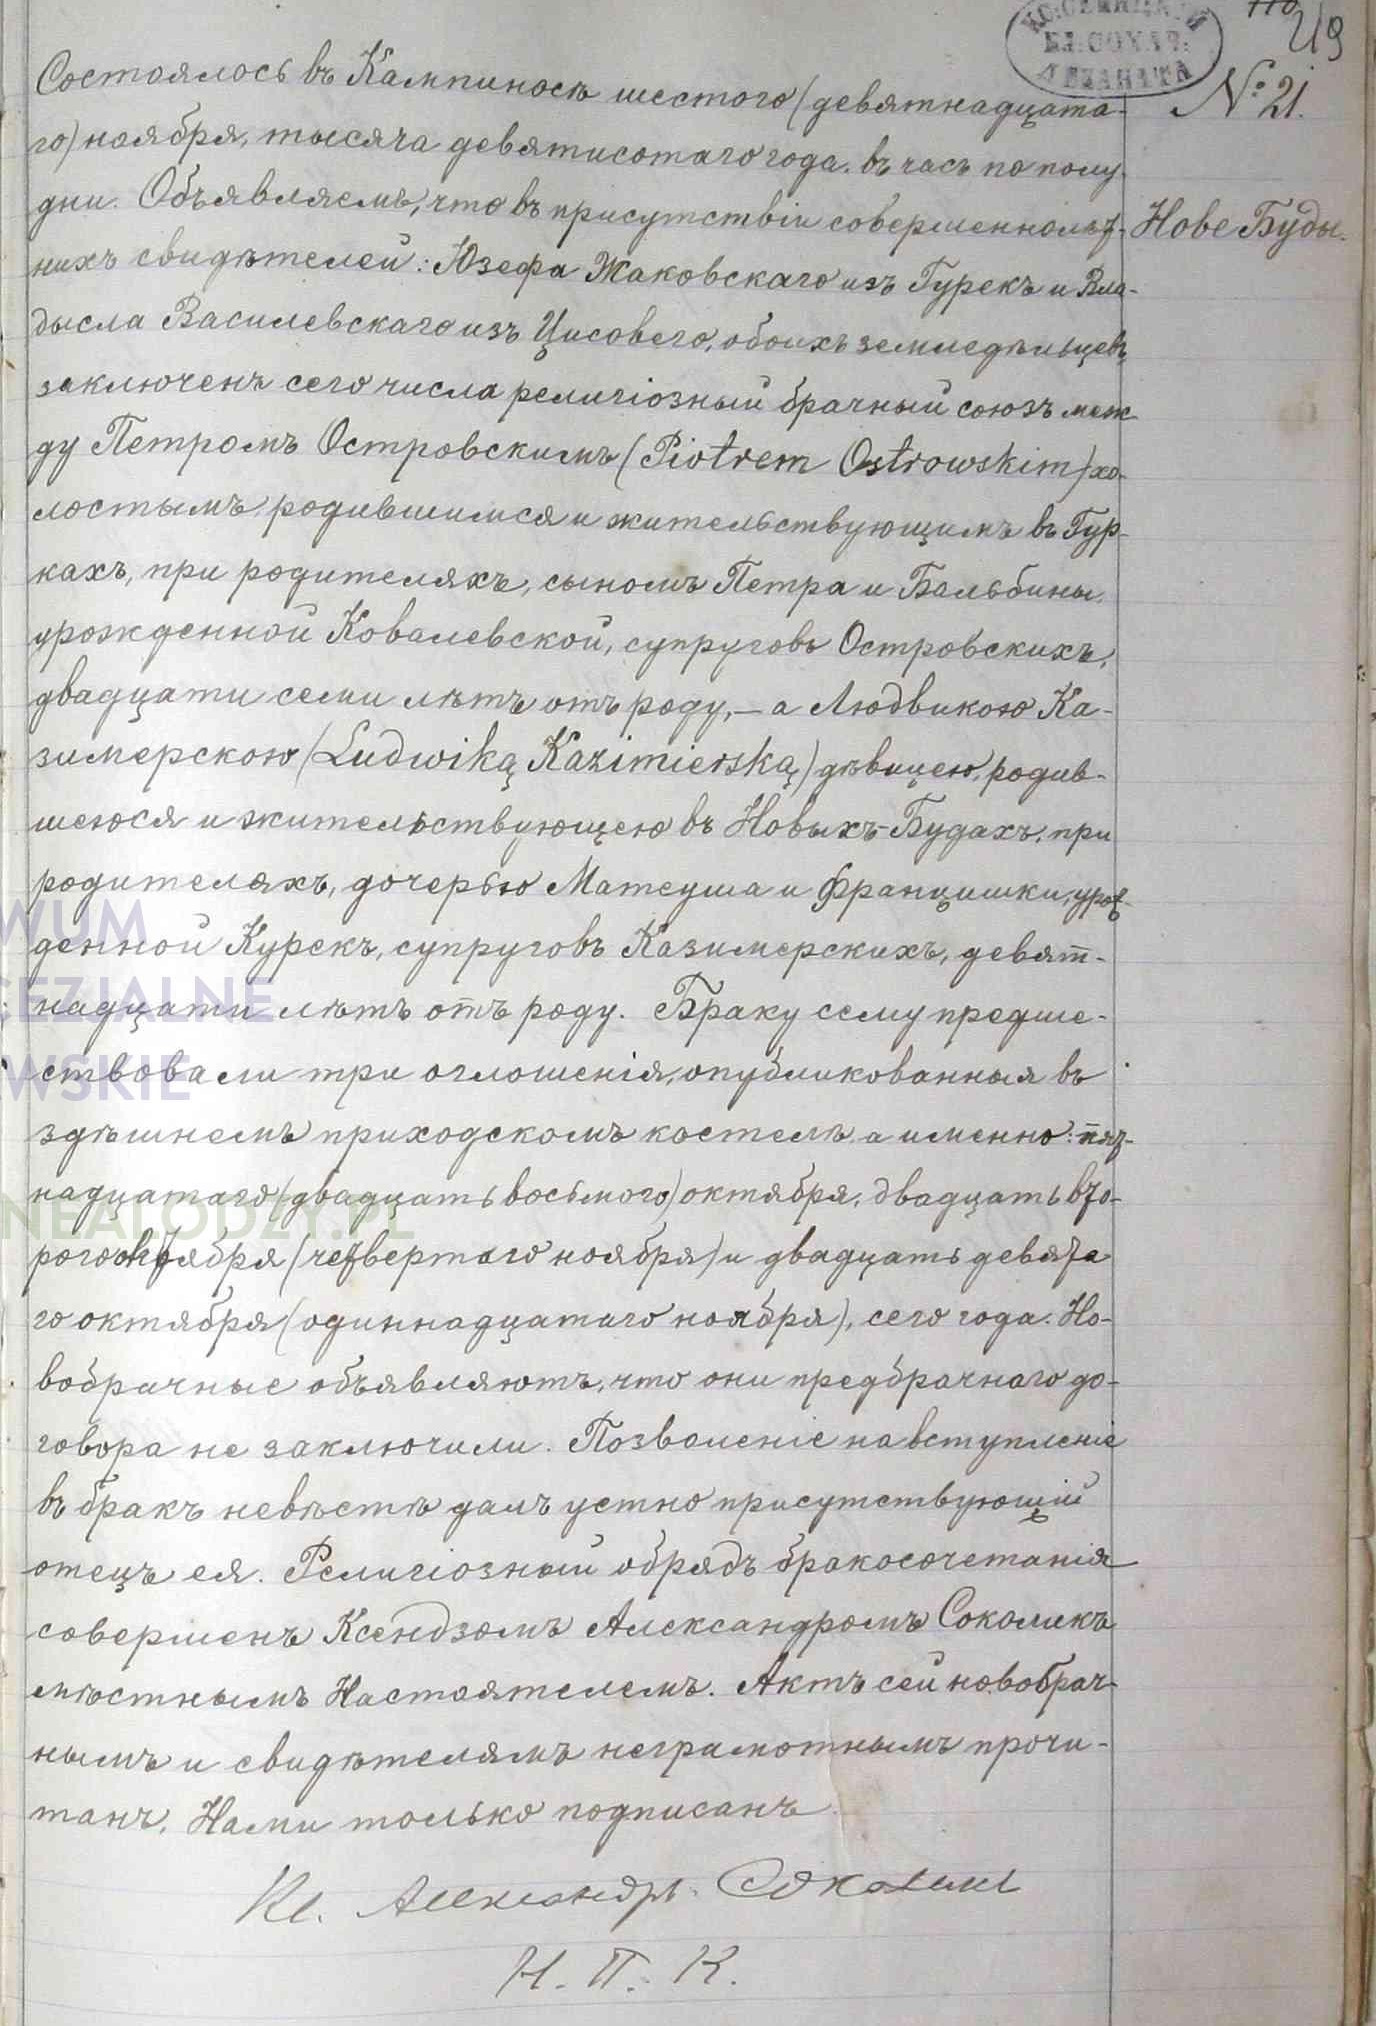 219
№ 21.
Нове Буды.
Состоялось въ Кампиносѣ шестого (девятнадцата-
го) ноября, тысяча девятисотаго года, въ часъ по полу-
дни. Объявляемъ, что въ присутствіи совершеннолѣт-
нихъ свидѣтелей: Юзефа Жаковскаго изъ Гурекъ и Вла-
дысла Василевскаго изъ Цисовего, обоихъ земледѣльцевъ,
заключенъ сего числа религіозный брачный союзъ меж
ду Петромъ Островскимъ (Piotrem Ostrowskim) хо-
лостымъ, родившимся и жительствующимъ въ Гур-
кахъ, при родителяхъ, сыномъ Петра и Бальбины,
урожденной Ковалевской, супруговъ Островскихъ,
двадцати семи лѣтъ отъ роду, — а Людвикою Ка-
зимерскою (Ludwiką Kazimierską) дѣвицею, родив-
шеюся и жительствующею въ Новыхъ-Будахъ, при
родителяхъ, дочерью Матеуша и Францишки, урож
денной Курекъ, супруговъ Казимерскихъ, девят-
надцати лѣтъ отъ роду. Браку сему предше-
ствовали три оглошенія, опубликованныя въ
здѣшнемъ приходскомъ костелѣ, а именно: пят-
надцатаго (двадцать восьмого) октября, двадцать вто-
рого октября (четвертаго ноября) и двадцать девята
го октября (одиннадцатаго ноября), сего года. Но-
вобрачные объявляютъ, что они предбрачнаго до-
говора не заключили. Позволеніе на вступленіе
въ бракъ невѣстѣ далъ устно присутствующій
отецъ ея. Религіозный обрядъ бракосочетанія
совершенъ Ксендзомъ Александромъ Соколикъ
мѣстнымъ Настоятелемъ. Актъ сей новобрач-
нымъ и свидѣтелямъ неграмотнымъ прочи-
танъ, Нами только подписанъ.
Кс. Александръ Соколик
Н. П. К.